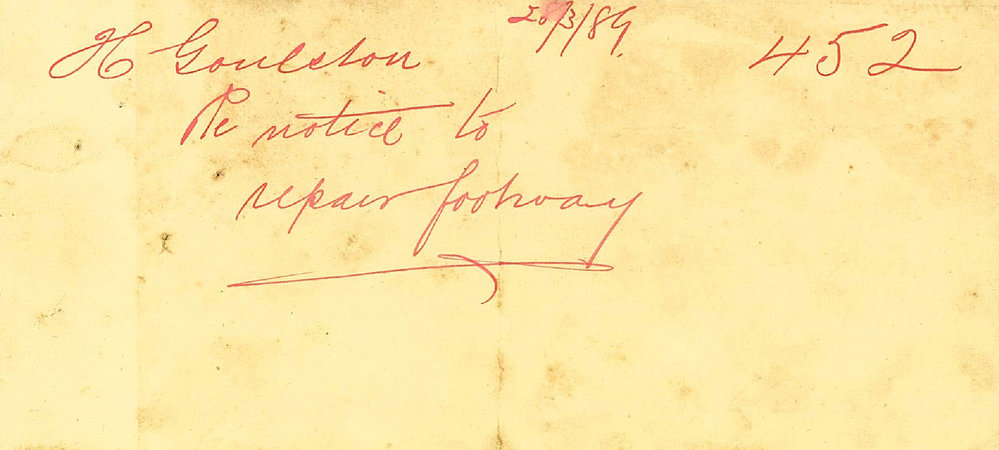 20/3/89. 452
H Goulston
Re notice to
repair footway